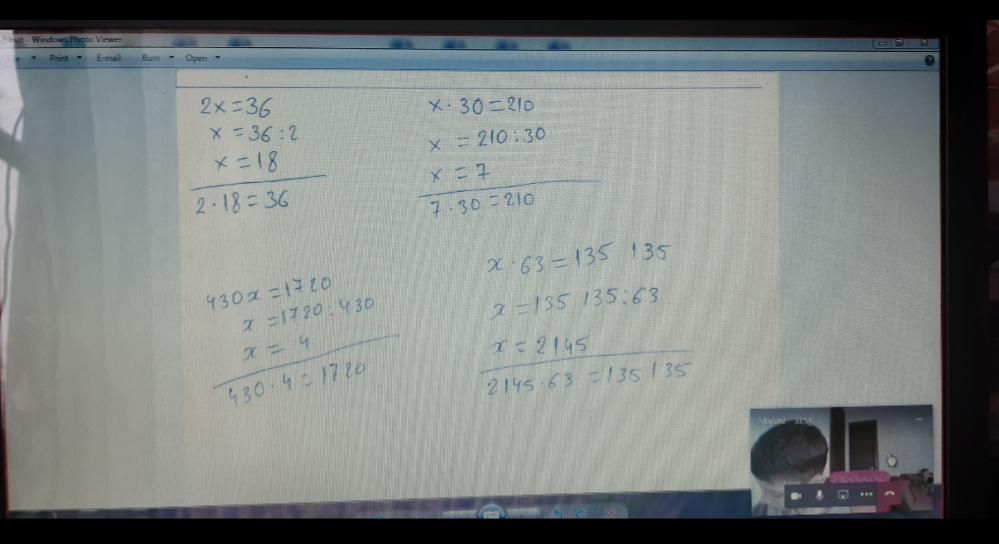 Windows Photo Viewer
Print E-mail Burn Open
2x=36
x=36:2
x=18
2·18=36
x·30=210
x=210:30
x=7
7·30=210
430x=1720
x=1720:430
x=4
430·4=1720
x·63=135 135
x=135 135:63
x=2145
2145·63=135 135